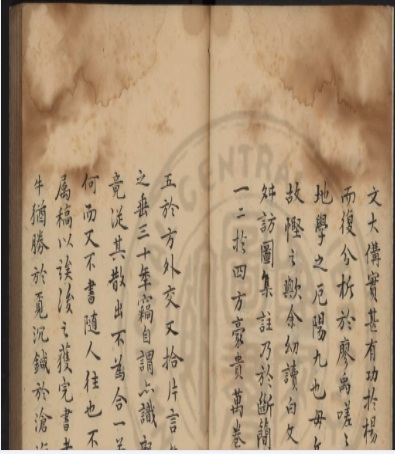 文大備實甚有功於楊
而復分析於廖禹嗟〻
地學之厄陽九也毋
故慳之歟余幼讀白文
訪圖集註乃於斷簡
一二於四方豪貴萬卷
五於方外交又拾片言
之垂三十年竊自謂亦識
竟從其散出不為合一
何而又不書隨人往也不
属稿以俟後之獲完書者
牛猶勝於覓沉鍼於滄
CENTRA